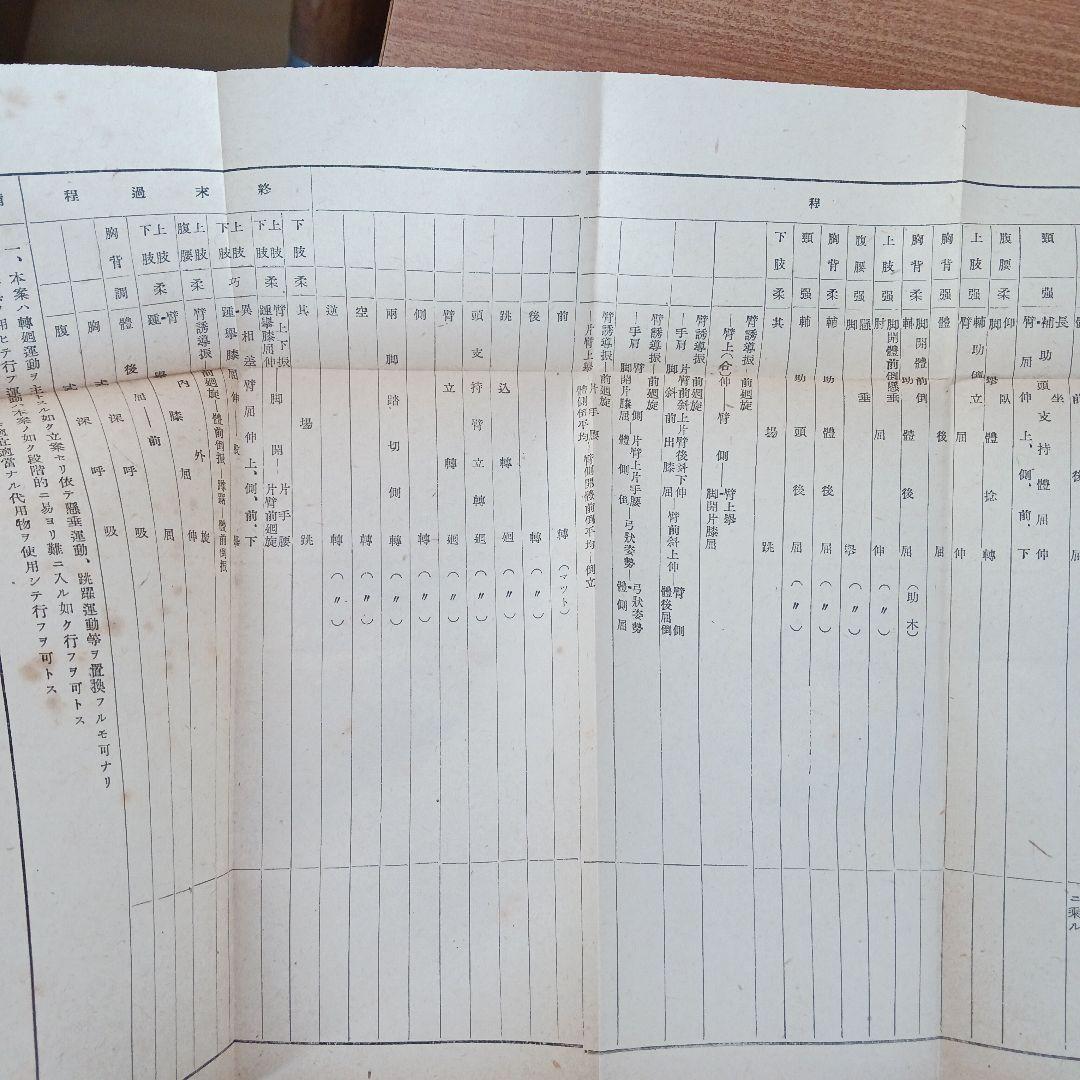 程
頸 强
補助頭支持體屈伸
腹腰 柔
上肢 强
臂屈伸 上、側、前、下
胸背
體後屈
胸背 柔
脚開體前倒
輔助體後屈(助木)
上肢 强
脚開體前倒懸垂
肘屈伸(〃)
腹腰 强
懸垂
脚擧(〃)
胸背 柔
輔助體後屈(〃)
頸 强
輔助頭後屈(〃)
下肢 柔
其場跳
臂誘導振—前廻旋
—臂上(合)伸—臂側
—臂上擧
脚開片膝屈
臂誘導振—前廻旋
—手肩
片臂前斜上片臂後斜下伸
脚斜前出膝屈
—臂前斜上伸—臂側
體後屈倒
臂誘導振—前廻旋
—手肩
脚開片膝屈
—片臂上片手腰—弓狀姿勢
體側倒—弓狀姿勢
體側屈
臂誘導振—前廻旋
片臂上擧
片手腰
體側倒平均—臂側開體前倒平均—倒立
前轉(マット)
後轉(〃)
跳込轉廻(〃)
頭支持臂立轉廻(〃)
臂立轉廻(〃)
側轉(〃)
兩脚踏切側轉(〃)
空轉(〃)
逆轉(〃)
終末過程
下肢 柔
其場跳
上肢
下肢 柔
臂上下振
踵擧膝屈伸
開—片手腰
片臂前廻旋
上肢
下肢 巧
異相差臂屈伸 上、側、前、下
上肢
腹腰 柔
臂誘導振—前廻旋
體前倒振
上肢
下肢 柔
臂内外旋
踵擧膝屈伸
胸背 調
體後屈—前屈
胸式深呼吸
腹式深呼吸
一、本案ハ轉廻運動ヲ主トスル如ク立案セリ依テ懸垂運動、跳躍運動等ヲ置換フルモ可ナリ
本案ノ如ク段階的ニ易ヨリ難ニ入ル如ク行フヲ可トス
適當ナル代用物ヲ使用シテ行フヲ可トス
ニ乘ル